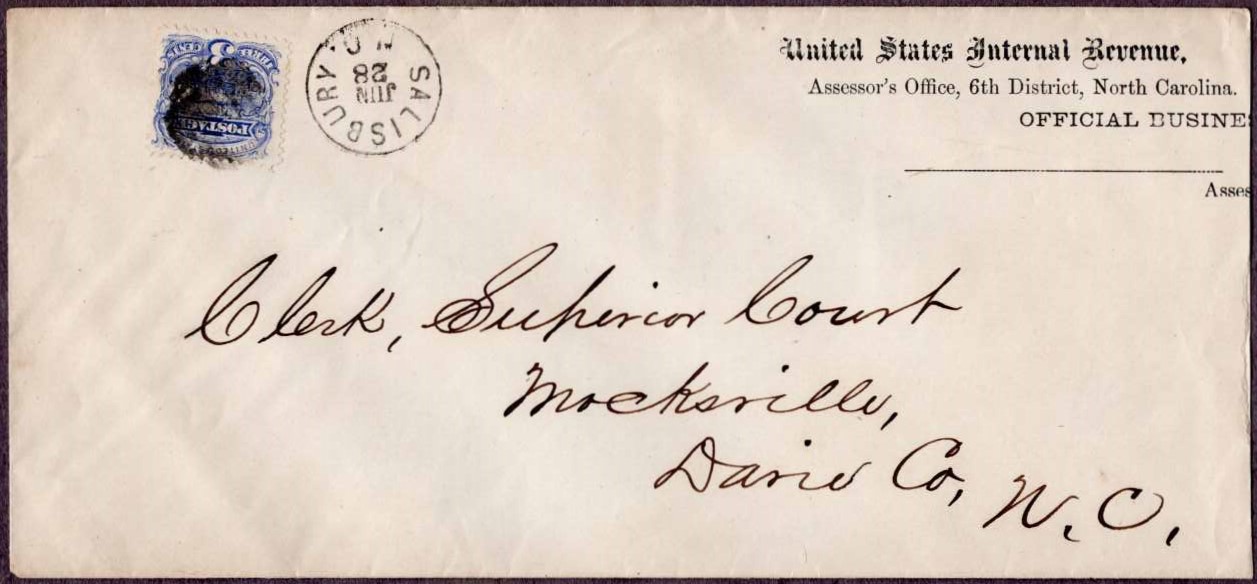 United States Internal Revenue,
Assessor's Office, 6th District, North Carolina.
OFFICIAL BUSINE
Asses
SALISBURY N.C.
JUN
28
3
POSTAG
Clerk, Superior Court
Mocksville,
Davie Co, N.C.